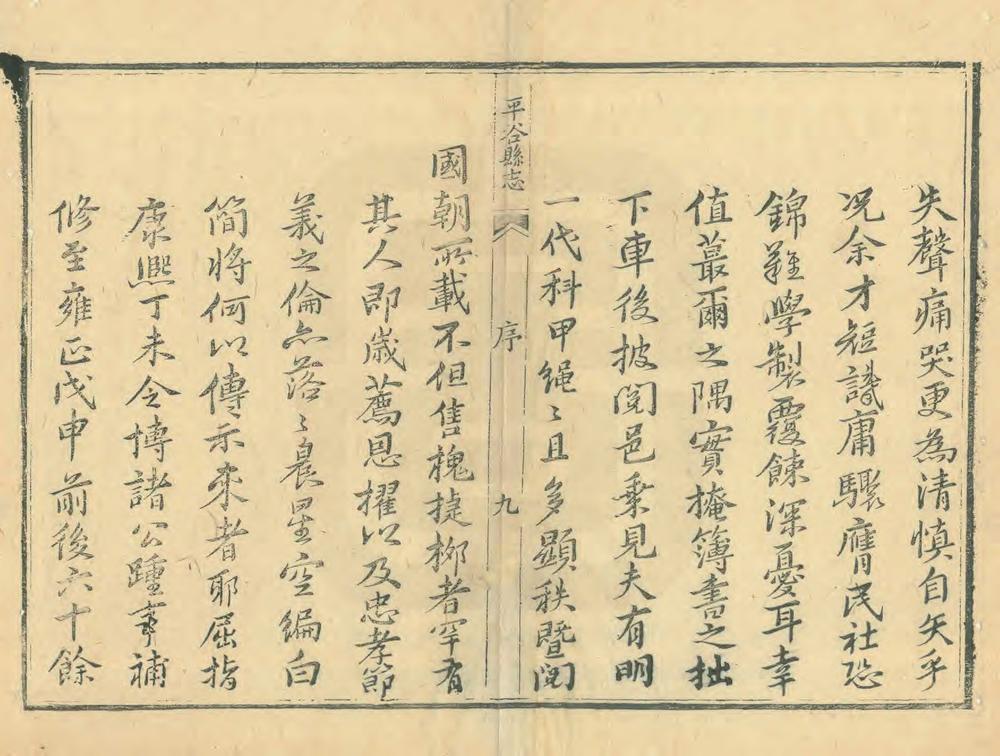 失聲痛哭更為清慎自矢乎
况余才短識庸驟膺民社恐
錦難學製覆餗深憂耳幸
值蕞爾之隅實掩簿書之拙
下車後披閱邑乗見夫有明
一代科甲繩〻且多顯秩曁閱
平谷縣志
序
九
國朝所載不但售槐捷柳者罕有
其人即歲薦恩擢以及忠孝節
義之倫亦落〻晨星空編白
簡將何以傳示來者耶屈指
康熙丁未令博諸公踵事補
修至雍正戊申前後六十餘